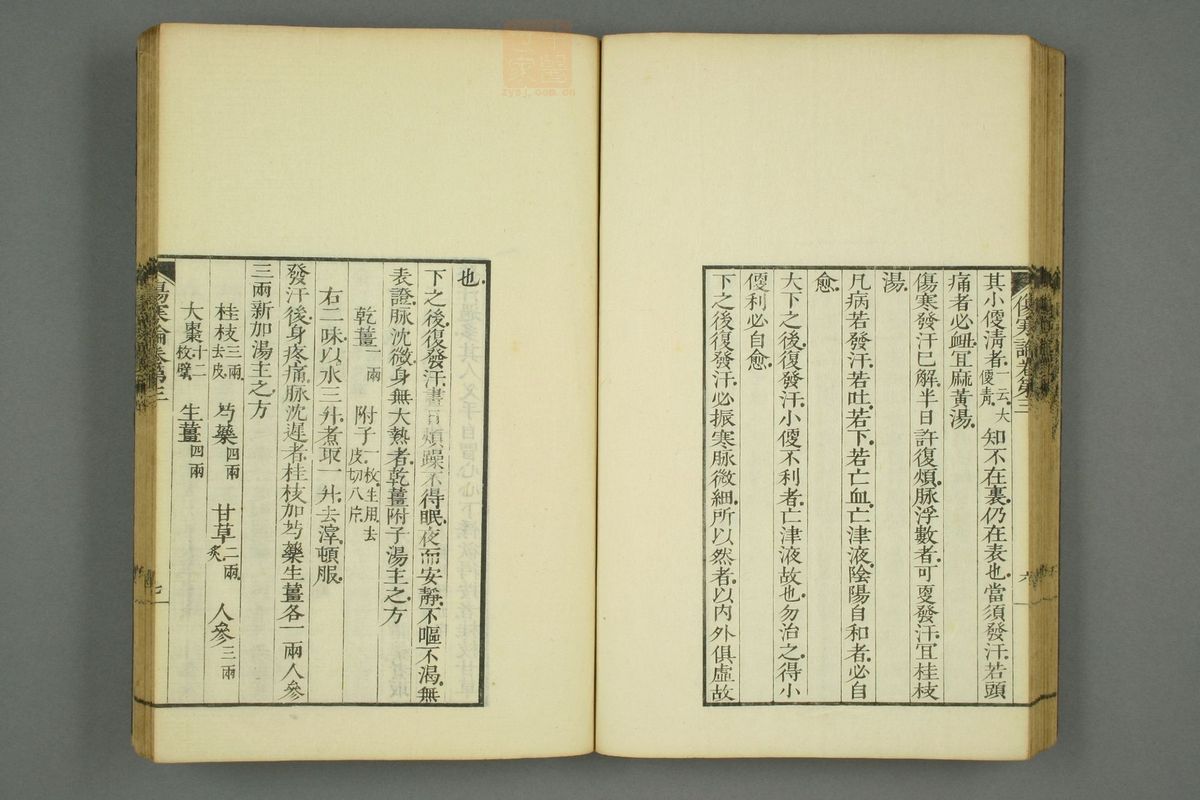 傷寒論卷第三
六
其小便淸者一云大便青知不在裏仍在表也當須發汗若頭
痛者必衄宜麻黃湯
傷寒發汗已解半日許復煩脉浮數者可更發汗宜桂枝
湯
凡病若發汗若吐若下若亡血亡津液陰陽自和者必自
愈
大下之後復發汗小便不利者亡津液故也勿治之得小
便利必自愈
下之後復發汗必振寒脉微細所以然者以內外俱虛故
也
下之後復發汗晝日煩躁不得眠夜而安靜不嘔不渴無
表證脉沈微身無大熱者乾薑附子湯主之方
乾薑一兩 附子一枚生用去皮切八片
右二味以水三升煮取一升去滓頓服
發汗後身疼痛脉沈遲者桂枝加芍藥生薑各一兩人參
三兩新加湯主之方
桂枝三兩去皮 芍藥四兩 甘草二兩炙 人參三兩
大棗十二枚擘 生薑四兩
傷寒論卷第三
七
zysj.com.cn